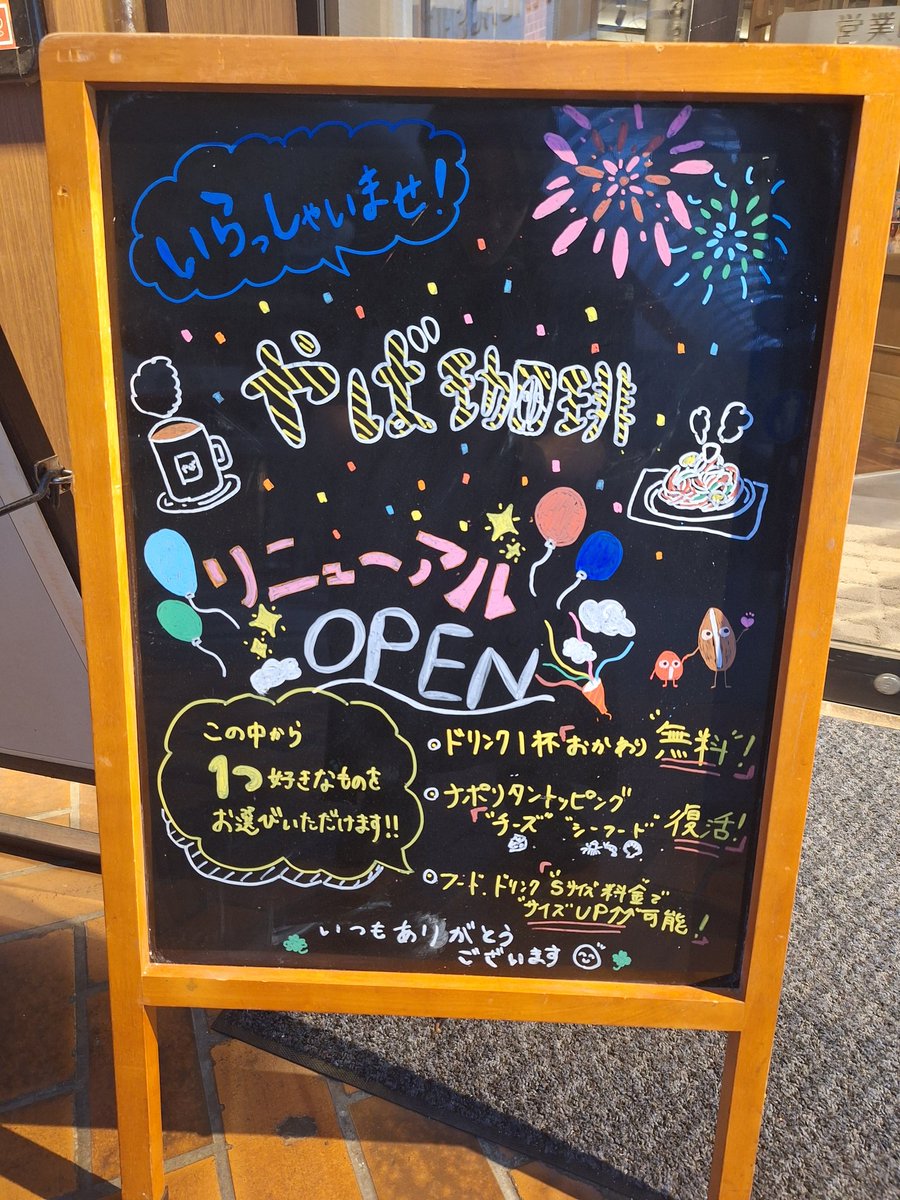 営業
いらっしゃいませ!
やば珈琲
リニューアル
OPEN
この中から
1つ好きなものを
お選びいただけます!!
ドリンク1杯「おかわり"無料"!」
ナポリタントッピング
「"チーズ" "シーフード" 復活!」
フード、ドリンク「"Sサイズ料金"で
"サイズUP"可能!」
いつもありがとう
ございます